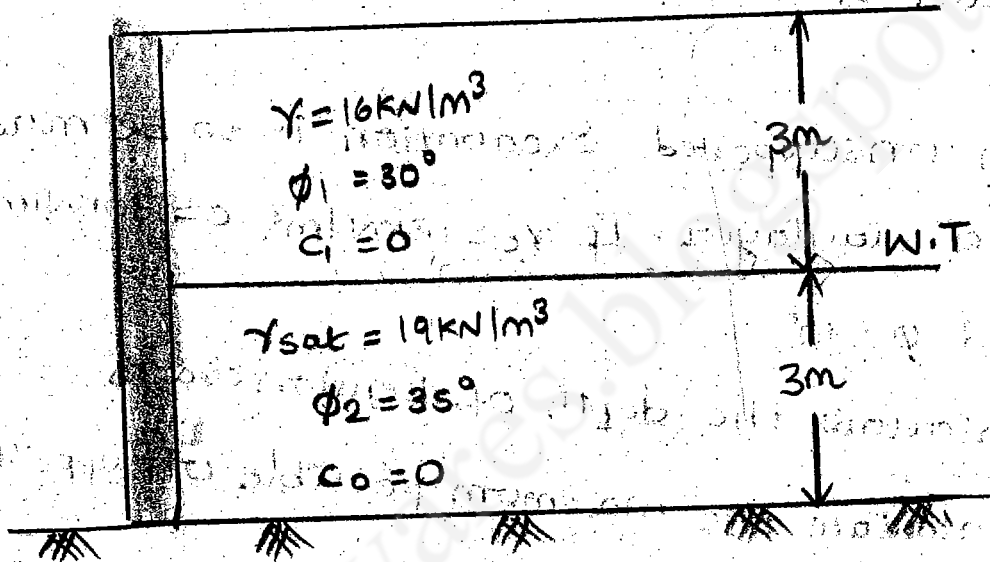 γ = 16KN/m³
ϕ₁ = 30°
C₁ = 0
3m
W.T
γsat = 19KN/m³
ϕ₂ = 35°
C₀ = 0
3m